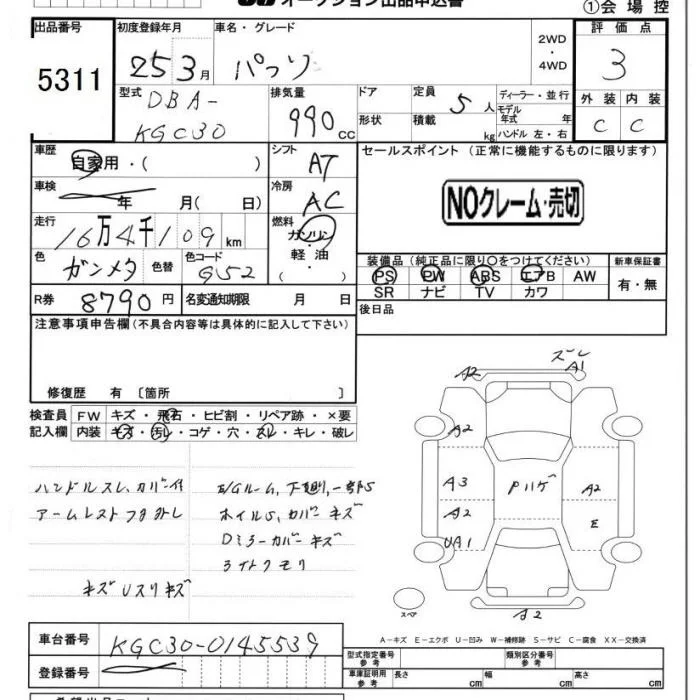 オークション出品申込書
①会場控
出品番号 初度登録年月 車名・グレード 評価点
5311 25 3月 パッソ 2WD ・ 4WD 3
型式 DBA- 排気量 ドア 定員 5人 ディーラー・並行 外装 内装
KGC30 990cc 形状 積載 kg モデル年式 年 ハンドル 左・右 C C
車歴 自家用・( ) シフト AT セールスポイント (正常に機能するものに限ります)
車検 年 月( 日) 冷房 AC NOクレーム・売切
走行 16万4千109km 燃料 ガソリン・軽油 ( )
色 ガンメタ 色替 色コード G52
装備品(純正品に限り〇をつけてください) 新車保証書
PS PW ABS エアB AW 有・無
SR ナビ TV カワ
R券 8790円 名変通知期限 月 日 後日品
注意事項申告欄(不具合内容等は具体的に記入して下さい)
修復歴 有 〔箇所 〕
検査員 FW キズ・飛石・ヒビ割・リペア跡・×要
記入欄 内装 キズ・汚レ・コゲ・穴・スレ・キレ・破レ
ハンドルスレ、カバー付 E/Gルーム、下廻り、一部S
アームレストフタ外レ ホイルS、カバーキズ
Dミラーカバーキズ
ライトクモリ
キズ Uスリキズ
ズレ
A2 A1
A2
A3 Pハゲ A2
A2 E
UA1
スペア A2
A-キズ E-エクボ U-凹み W-補修跡 S-サビ C-腐食 XX-交換済
車台番号 KGC30-0145539
登録番号
型式指定番号 参考 類別区分番号 参考
車庫証明用 参考 長さ cm 幅 cm 高さ cm